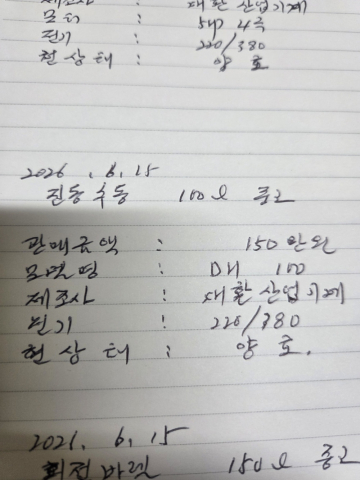 제조사 : 재환 산업기계
모터 : 5HP 4극
전기 : 220/380
현 상 태 : 양 호
2026 . 6. 15
진동 수동 100ℓ 중고
판매금액 : 150만원
모델명 : DH 100
제조사 : 재환 산업기계
전기 : 220/380
현 상 태 : 양 호.
2021. 6. 15
회전 바렐 150ℓ 중고